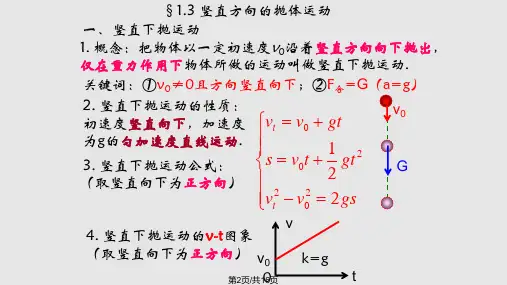 §1.3 竖直方向的抛体运动
一、竖直下抛运动
1. 概念：把物体以一定初速度v₀沿着竖直方向向下抛出，
仅在重力作用下物体所做的运动叫做竖直下抛运动.
关键词：①v₀≠0且方向竖直向下；②F合=G（a=g）
2. 竖直下抛运动的性质：
初速度竖直向下，加速度
为g的匀加速度直线运动.
3. 竖直下抛运动公式：
（取竖直向下为正方向）
vₜ = v₀ + gt
s = v₀t + 1/2 gt²
vₜ² − v₀² = 2gs
v₀
G
4. 竖直下抛运动的v-t图象
（取竖直向下为正方向）
v
v₀
k=g
0
t
第2页/共1页